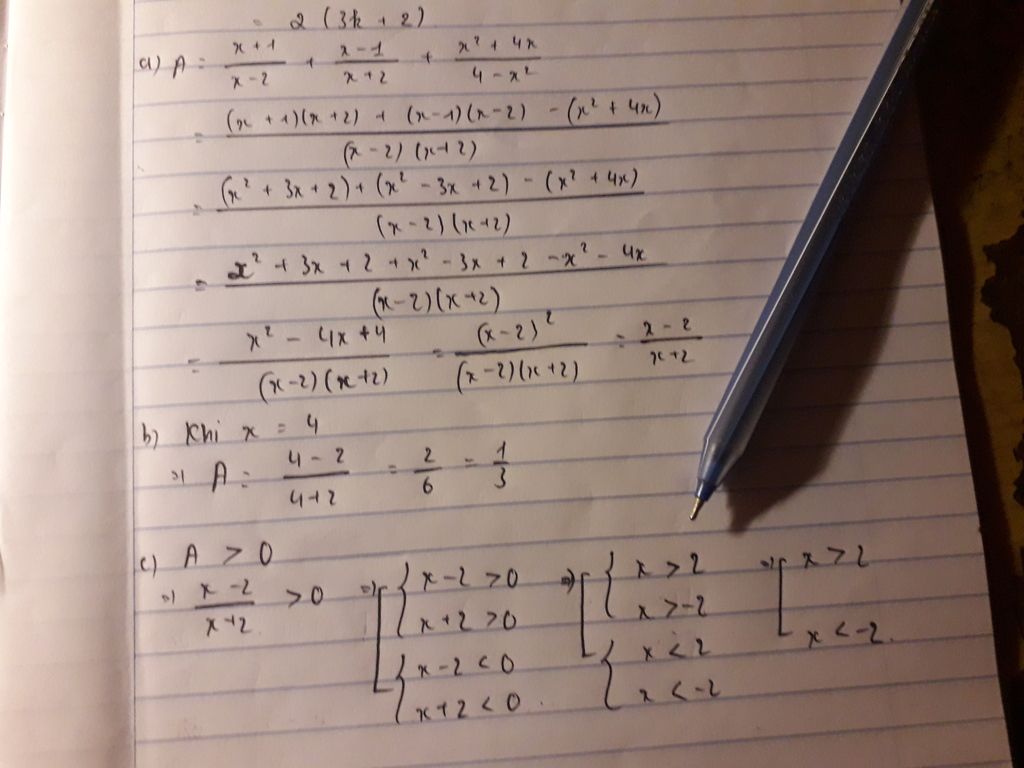 = 2 (3k + 2)
a) A = \frac{x+1}{x-2} + \frac{x-1}{x+2} + \frac{x² + 4x}{4 - x²}
= \frac{(x + 1)(x + 2) + (x-1)(x-2) - (x² + 4x)}{(x - 2) (x+2)}
= \frac{(x² + 3x + 2) + (x² - 3x + 2) - (x² + 4x)}{(x - 2)(x+2)}
= \frac{x² + 3x + 2 + x² - 3x + 2 - x² - 4x}{(x-2)(x+2)}
= \frac{x² - 4x + 4}{(x-2)(x+2)} = \frac{(x-2)²}{(x-2)(x+2)} = \frac{x - 2}{x+2}
b) Khi x = 4
=) A = \frac{4 - 2}{4+2} = \frac{2}{6} = \frac{1}{3}
c) A > 0
=) \frac{x - 2}{x+2} > 0 =) [ { x - 2 > 0 =) [ { x > 2 =) [ x > 2
x + 2 > 0 x > -2
{ x - 2 < 0 { x < 2 x < -2.
x + 2 < 0. x < -2